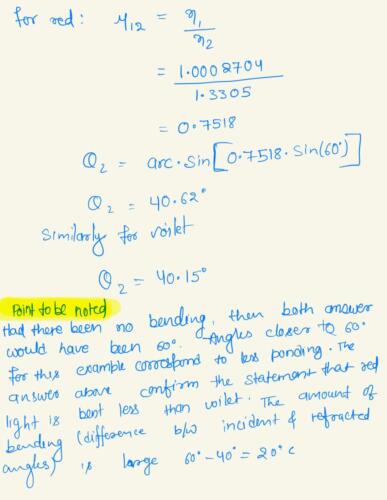 for red: η12 = η1/η2
= 1.0002704/1.3305
= 0.7518
θ2 = arc.sin[0.7518.sin(60°)]
θ2 = 40.62°
Similarly for voilet
θ2 = 40.15°
Point to be noted
Had there been no bending, then both answer
would have been 60°. Angles closer to 60°
for this example correspond to less ponding. The
answer above confirm the statement that red
light is bent less than voilet. The amount of
bending (difference b/w incident & refracted
angles) is large 60°-40°=20°C